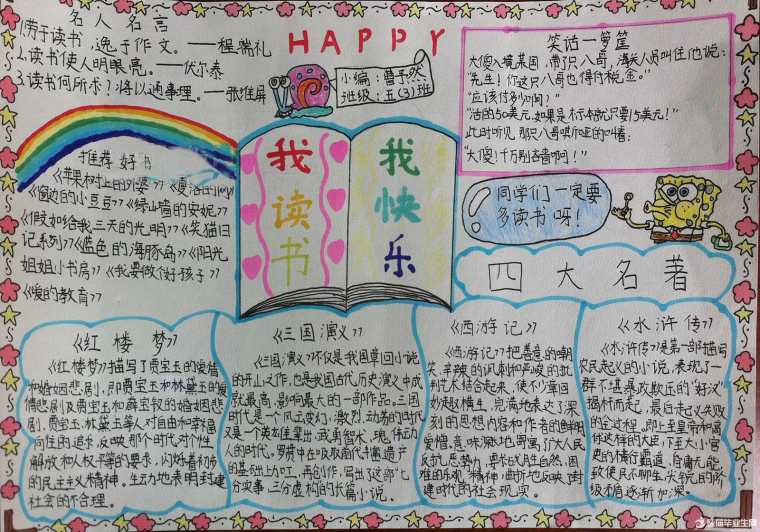 名人名言
1.劳于读书,逸于作文。——程端礼
2.读书使人明眼亮。——伏尔泰
3.读书何所求?将以通事理。——张维屏
HAPPY
小编:曾予然
班级:五(3)班
笑话一箩筐
大傻入境某国,带了只八哥,海关人员叫住他说:
"先生!你这只八哥也得付税金。"
"应该付多少啊?"
"活的50美元,如果是标本就只要15美元!"
此时听见那只八哥
"大傻!千万别吝啬啊!"
推荐好书
《苹果树上的外婆》《夏洛的网》
《窗边的小豆豆》《绿山墙的安妮》
《假如给我三天的光明》《笑猫日
记系列》《蓝色的海豚岛》《阳光
姐姐小书房》《我要做个好孩子》
《爱的教育》
我读书
我快乐
同学们一定要
多读书呀!
四大名著
《红楼梦》
《红楼梦》描写了贾宝玉的爱情
和婚姻悲剧,即贾宝玉和林黛玉的爱
情悲剧及贾宝玉和薛宝钗的婚姻悲
剧,贾宝玉、林黛玉等人对自由和幸福
向往的追求,反映那个时代对个性
解放和人权平等的要求,闪烁着初步
的民主主义精神,生动地表明封建
社会的不合理。
《三国演义》
《三国演义》不仅是我国章回小说
的开山之作,也是我国古代历史演义中成
就最高,影响最大的一部作品。三国
时代是一个风云变幻,激烈,动荡的时代
又是一个英雄辈出,武勇智术,瑰伟动人
的时代。罗贯中在吸取前代
的基础上加工,再创作,写出了这部"七
分实事,三分虚构的长篇小说。
《西游记》
《西游记》把善意的嘲
笑,辛辣的讽刺和严峻的批
判艺术结合起来,使不少章回
妙趣横生,完满地表达了深
刻的思想内容和作者的鲜明
爱憎,意味深长地寄寓了广大人民
反抗恶势力,要求战胜自然,困
难的乐观精神,曲折地反映封
建时代的社会现实。
《水浒传》
《水浒传》是第一部描写
农民起义的小说,表现了一
群不堪暴政欺压的"好汉"
揭杆而起,最后起义失败
的全过程,即上至皇帝和高
俅这样的大臣,下至大小官
吏的横行霸道,昏庸无能
致使民不聊生,尖锐的阶
级矛盾逐渐加深。